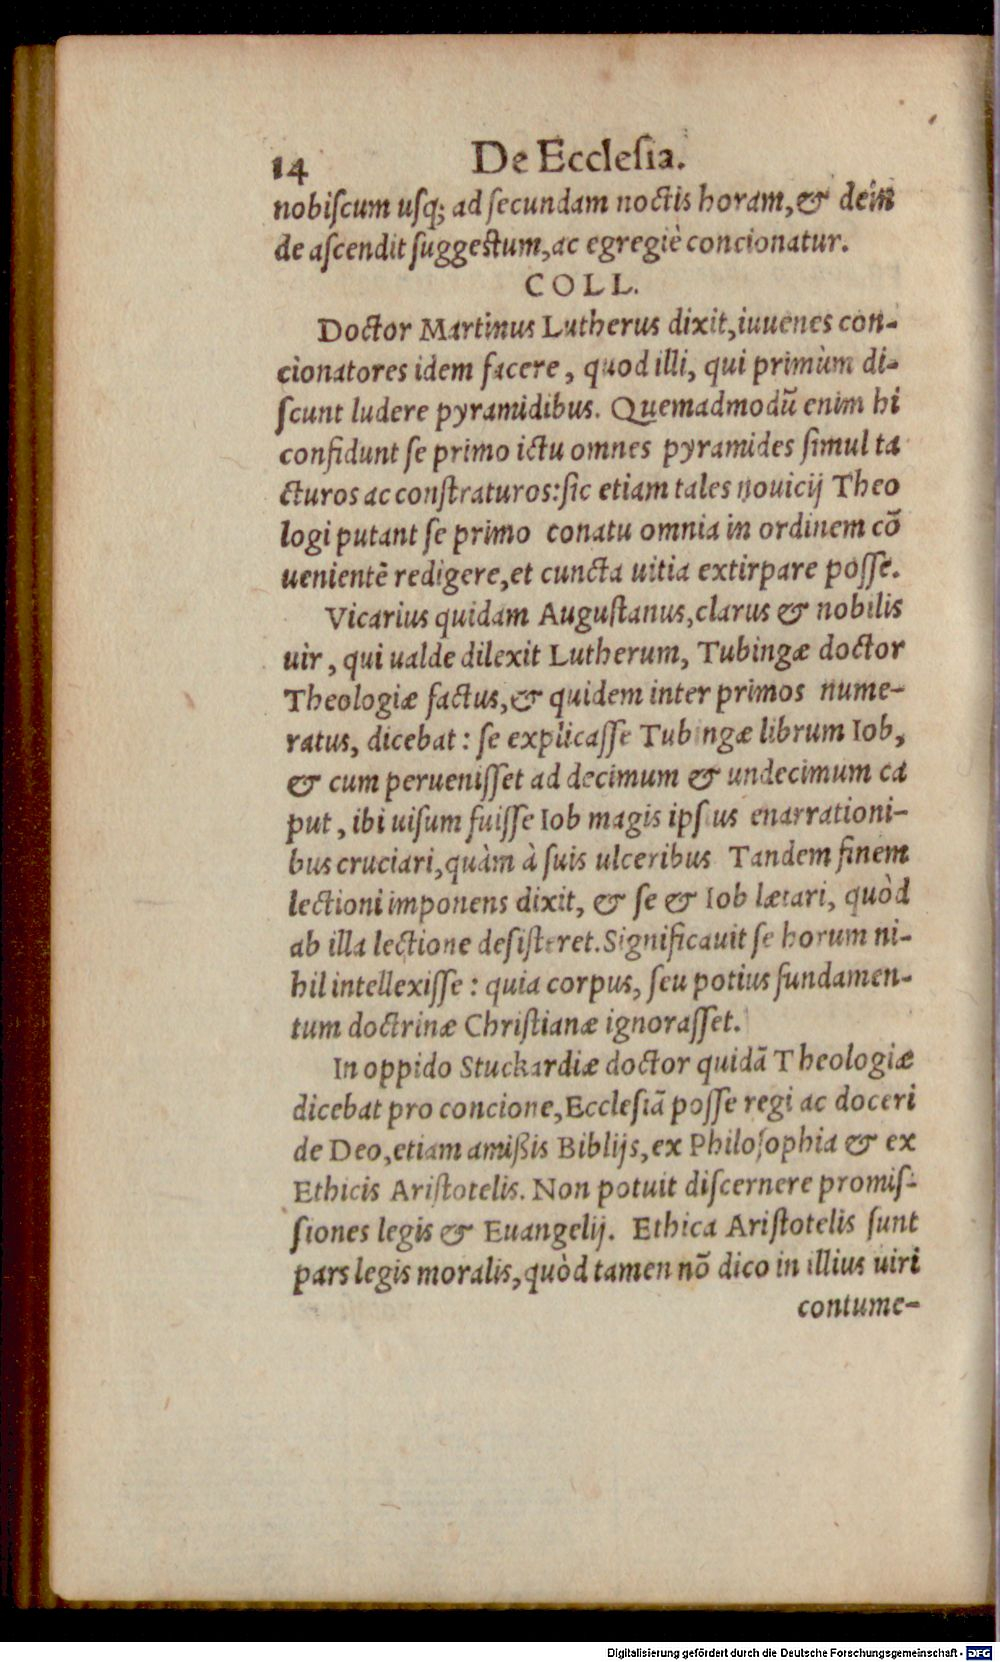 14 De Ecclesia.
nobiſcum uſq; ad ſecundam noctis horam, & dein
de aſcendit ſuggeſtum, ac egregiè concionatur.
COLL.
Doctor Martinus Lutherus dixit, iuuenes con-
cionatores idem facere, quod illi, qui primùm di-
ſcunt ludere pyramidibus. Quemadmodũ enim hi
confidunt ſe primo ictu omnes pyramides ſimul ta
cturos ac conſtraturos: ſic etiam tales nouicij Theo
logi putant ſe primo conatu omnia in ordinem cõ
uenientẽ redigere, et cuncta uitia extirpare poſſe.
Vicarius quidam Auguſtanus, clarus & nobilis
uir, qui ualde dilexit Lutherum, Tubingæ doctor
Theologiæ factus, & quidem inter primos nume-
ratus, dicebat: ſe explicaſſe Tubingæ librum Iob,
& cum perueniſſet ad decimum & undecimum ca
put, ibi uiſum fuiſſe Iob magis ipſius enarrationi-
bus cruciari, quàm à ſuis ulceribus Tandem finem
lectioni imponens dixit, & ſe & Iob lætari, quòd
ab illa lectione deſiſteret. Significauit ſe horum ni-
hil intellexiſſe: quia corpus, ſeu potius fundamen-
tum doctrinæ Chriſtianæ ignoraſſet.
In oppido Stuckardiæ doctor quidã Theologiæ
dicebat pro concione, Eccleſiã poſſe regi ac doceri
de Deo, etiam amißis Biblijs, ex Philoſophia & ex
Ethicis Ariſtotelis. Non potuit diſcernere promiſ-
ſiones legis & Euangelij. Ethica Ariſtotelis ſunt
pars legis moralis, quòd tamen nõ dico in illius uiri
contume-
Digitalisierung gefördert durch die Deutsche Forschungsgemeinschaft - DFG